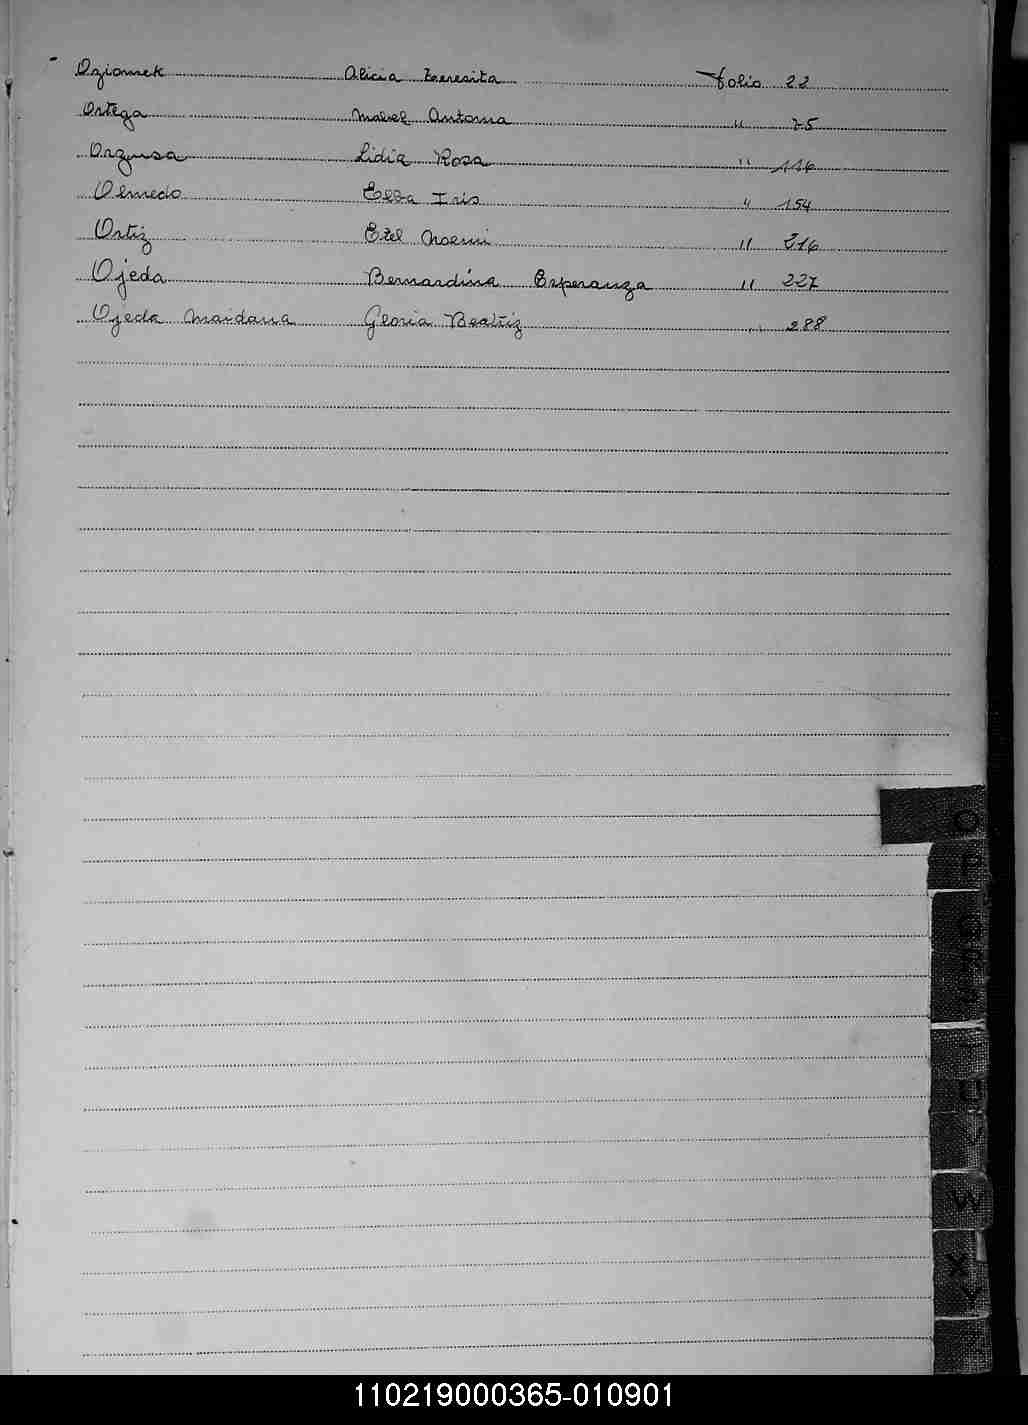 Oziomek Alicia Teresita folio 22
Ortega Mabel Antonia " 75
Orzusa Lidia Rosa " 116
Olmedo Elba Iris " 154
Ortiz Etel Noemi " 216
Ojeda Bernardina Esperanza " 227
Ojeda Maidana Gloria Beatriz " 288
O
P
U
W
X
Y
110219000365-010901